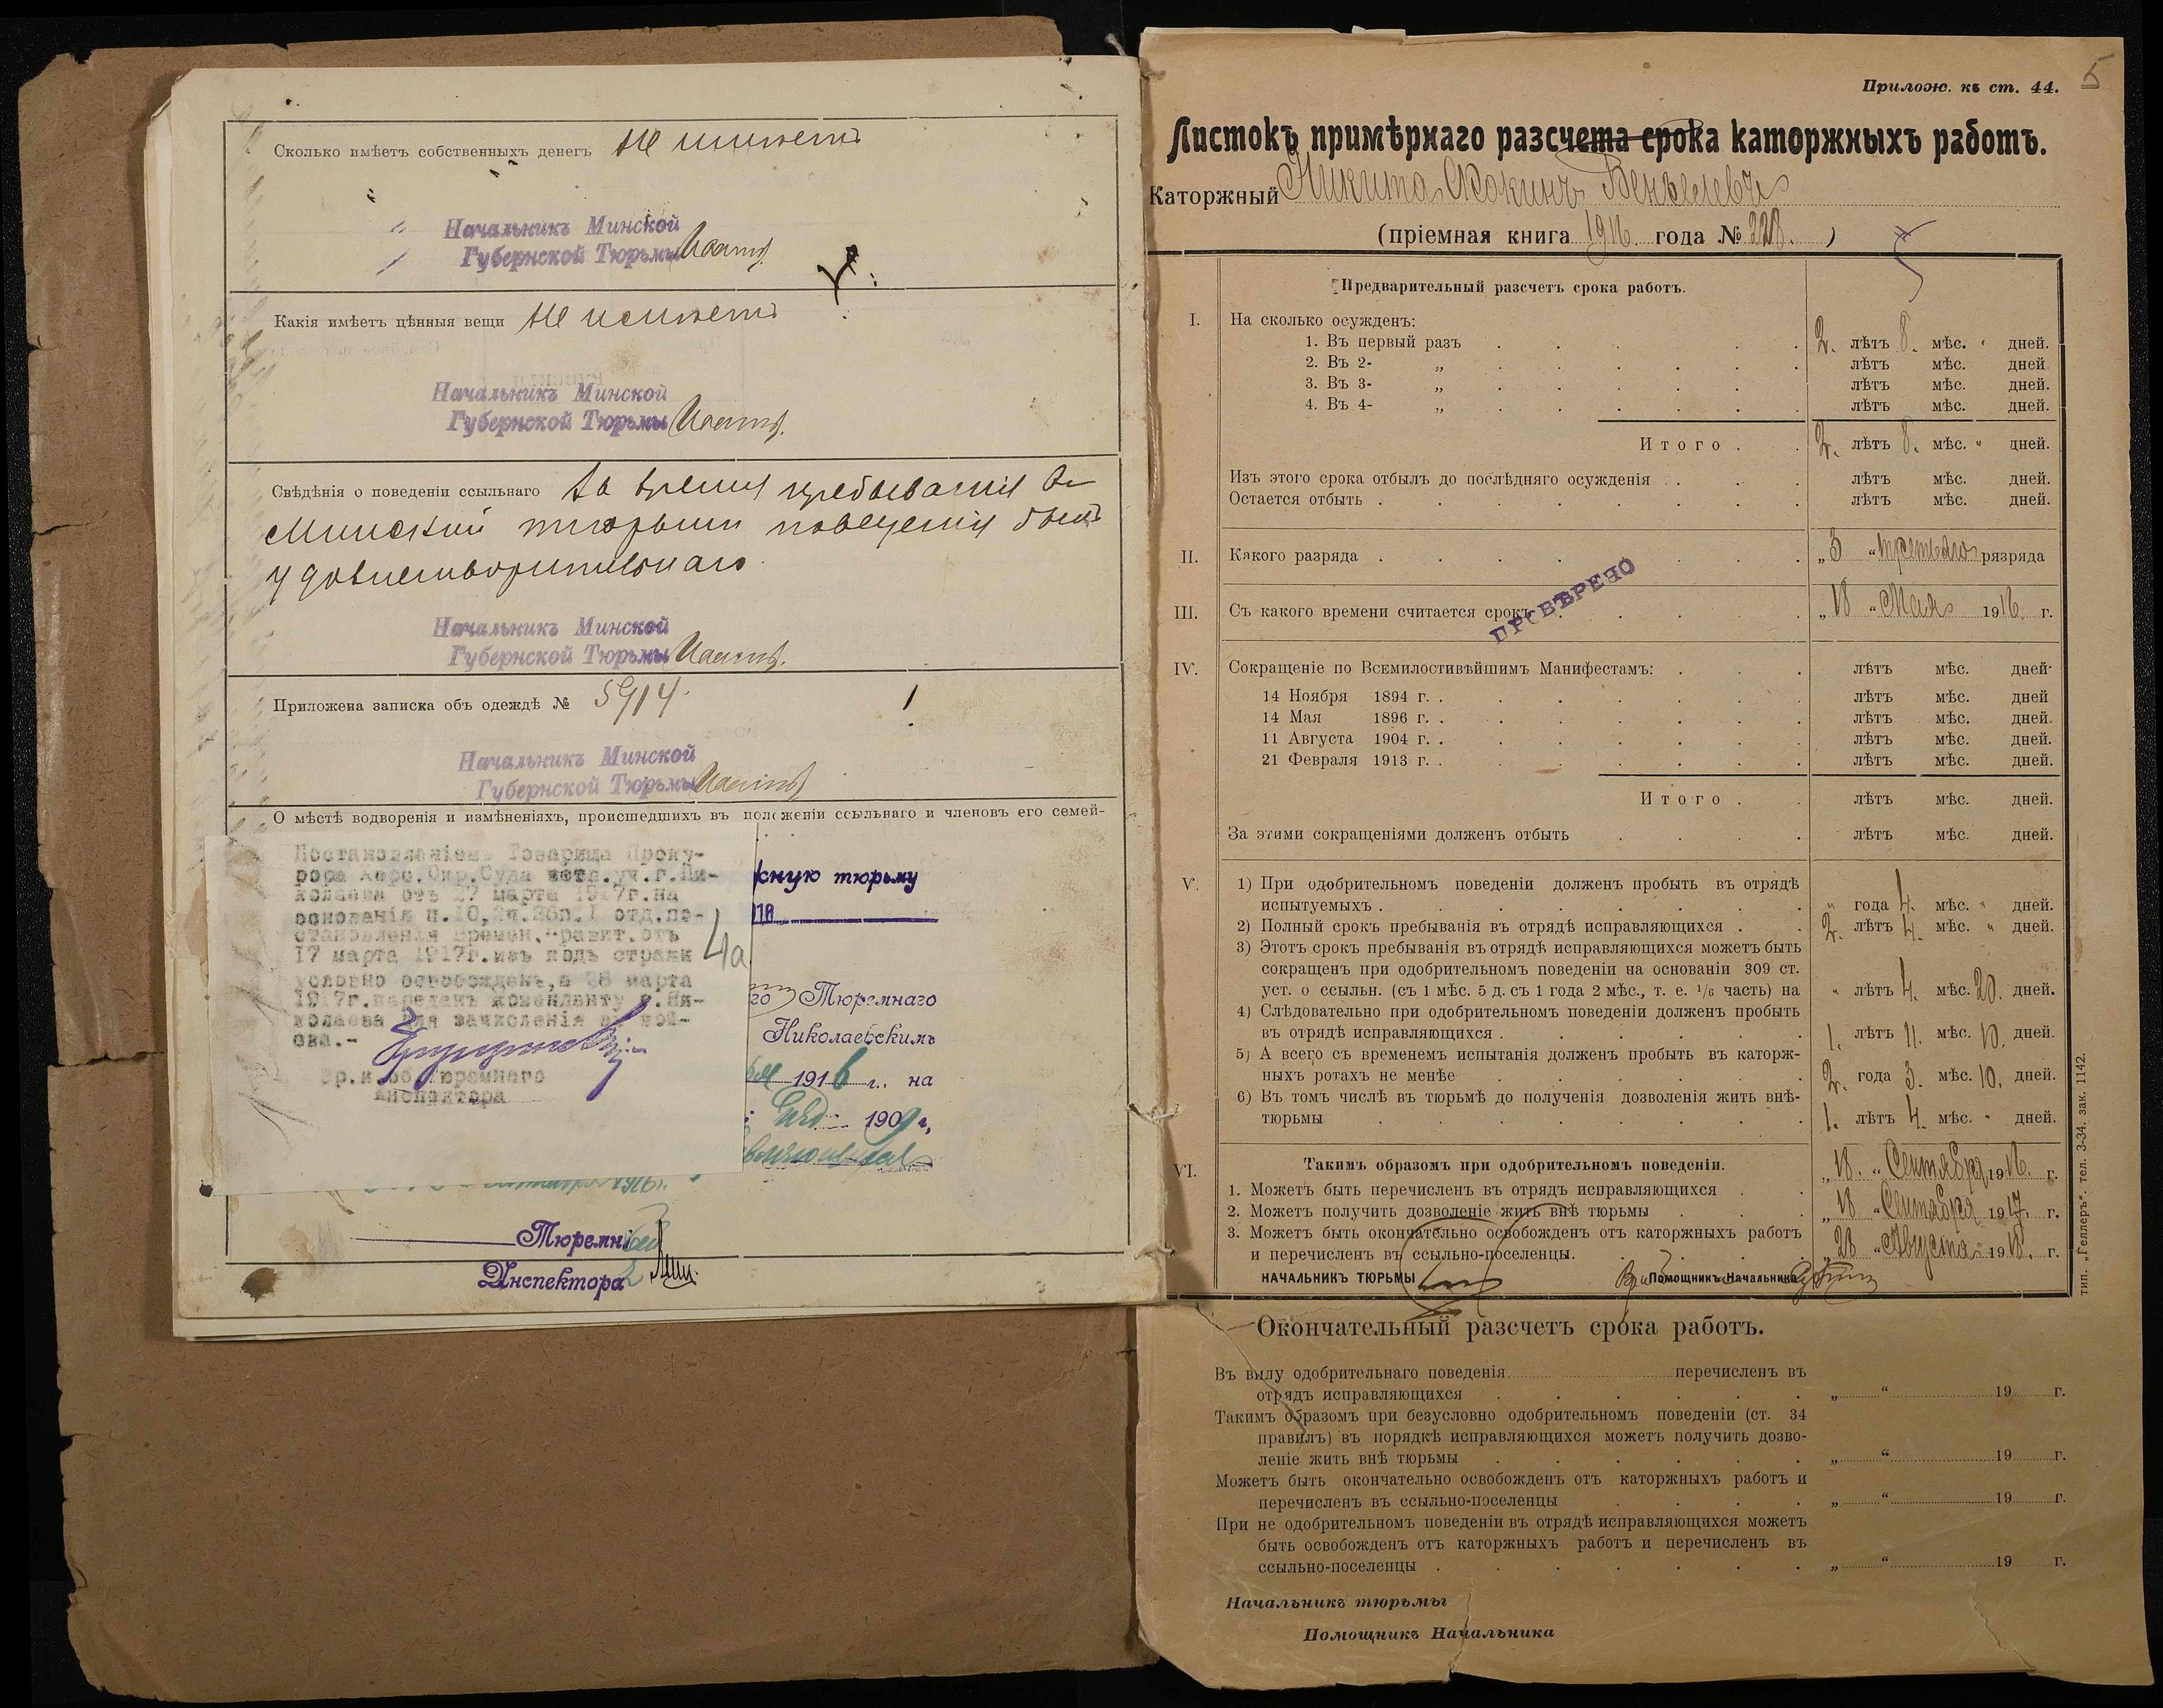 Сколько имѣетъ собственныхъ денегъ Не имѣетъ
Начальникъ Минской
Губернской Тюрьмы
Какія имѣетъ цѣнныя вещи Не имѣетъ
Начальникъ Минской
Губернской Тюрьмы
Свѣдѣнія о поведеніи ссыльнаго За время пребыванія въ
Минской тюрьмѣ поведенія былъ
удовлетворительнаго
Начальникъ Минской
Губернской Тюрьмы
Приложена записка объ одеждѣ № 5914.
Начальникъ Минской
Губернской Тюрьмы
О мѣстѣ водворенія и измѣненіяхъ, происшедшихъ въ положеніи ссыльнаго и членовъ его семей-
Постановленіемъ Товарища Проку-
рора Херс.Окр.Суда уч.г.Ни-
колаева отъ 27 марта 1917г.на
основаніи отд.по-
становленія Времен. правит.отъ
17 марта 1917г.изъ подъ стражи
условно освобожденъ,а 28 марта
1917г.переданъ коменданту г.Ни-
колаева для зачисленія въ вой-
ска.-
Вр.и.об.Тюремнаго
Инспектора
4а
сную тюрьму
го Тюремнаго
Николаевскимъ
1916 г., на
1909 г,
Тюремн
Инспектора
5
Прилож. къ ст. 44.
Листокъ примѣрнаго разсчета срока каторжныхъ работъ.
Каторжный Никита Скокинъ
(пріемная книга 1916 года № 228. )
Предварительный разсчетъ срока работъ.
I. На сколько осужденъ:
1. Въ первый разъ 2. лѣтъ 8. мѣс. " дней.
2. Въ 2- „ лѣтъ мѣс. дней.
3. Въ 3- „ лѣтъ мѣс. дней.
4. Въ 4- „ лѣтъ мѣс. дней.
Итого . 2. лѣтъ 8. мѣс. " дней.
Изъ этого срока отбылъ до послѣдняго осужденія лѣтъ мѣс. дней.
Остается отбыть . лѣтъ мѣс. дней.
II. Какого разряда . „3 “ третьяго рязряда
III. Съ какого времени считается срокъ „18 “ Мая 1916. г.
ПРОВѢРЕНО
IV. Сокращеніе по Всемилостивѣйшимъ Манифестамъ: лѣтъ мѣс. дней.
14 Ноября 1894 г. . лѣтъ мѣс. дней
14 Мая 1896 г. . лѣтъ мѣс. дней.
11 Августа 1904 г. . лѣтъ мѣс. дней.
21 Февраля 1913 г. . лѣтъ мѣс. дней.
Итого . лѣтъ мѣс. дней.
За этими сокращеніями долженъ отбыть лѣтъ мѣс. дней.
V. 1) При одобрительномъ поведеніи долженъ пробыть въ отрядѣ
испытуемыхъ . " года 4. мѣс. " дней.
2) Полный срокъ пребыванія въ отрядѣ исправляющихся . 2. лѣтъ 4. мѣс. " дней.
3) Этотъ срокъ пребыванія въ отрядѣ исправляющихся можетъ быть
сокращенъ при одобрительномъ поведеніи на основаніи 309 ст.
уст. о ссыльн. (съ 1 мѣс. 5 д. съ 1 года 2 мѣс., т. е. 1/6 часть) на " лѣтъ 4. мѣс. 20. дней.
4) Слѣдовательно при одобрительномъ поведеніи долженъ пробыть
въ отрядѣ исправляющихся . 1. лѣтъ 11. мѣс. 10. дней.
5) А всего съ временемъ испытанія долженъ пробыть въ каторж-
ныхъ ротахъ не менѣе 2. года 3. мѣс. 10. дней.
6) Въ томъ числѣ въ тюрьмѣ до полученія дозволенія жить внѣ-
тюрьмы 1. лѣтъ 4. мѣс. " дней.
VI. Такимъ образомъ при одобрительномъ поведеніи.
1. Можетъ быть перечисленъ въ отрядъ исправляющихся „18. “ Сентября 1916. г.
2. Можетъ получить дозволеніе жить внѣ тюрьмы „18 “ Сентября 1917. г.
3. Можетъ быть окончательно освобожденъ отъ каторжныхъ работъ
и перечисленъ въ ссыльно-поселенцы. „28 “ Августа 1918. г.
НАЧАЛЬНИКЪ ТЮРЬМЫ Помощникъ Начальника
тип. „Геллеръ“. тел. 3-34. зак. 1142.
Окончательный разсчетъ срока работъ.
Въ виду одобрительнаго поведенія перечисленъ въ
отрядъ исправляющихся „ “ 19 г.
Такимъ образомъ при безусловно одобрительномъ поведеніи (ст. 34
правилъ) въ порядкѣ исправляющихся можетъ получить дозво-
леніе жить внѣ тюрьмы „ “ 19 г.
Можетъ быть окончательно освобожденъ отъ каторжныхъ работъ и
перечисленъ въ ссыльно-поселенцы „ “ 19 г.
При не одобрительномъ поведеніи въ отрядѣ исправляющихся можетъ
быть освобожденъ отъ каторжныхъ работъ и перечисленъ въ
ссыльно-поселенцы . „ “ 19 г.
Начальникъ тюрьмы
Помощникъ Начальника